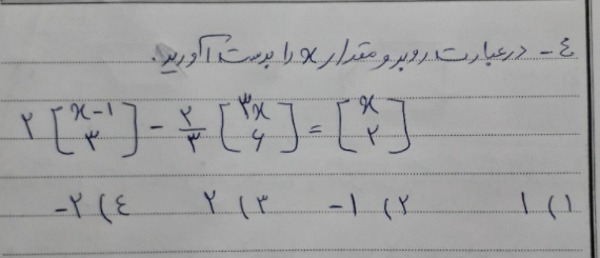 ٤- در عبارت روبرو مقدار x را بدست آورید.
۲ [x-۱ ۳] - ۲/۳ [۳x ۶] = [x ۲]
۱) ۱ ۲) -۱ ۳) ۲ ٤) -۲